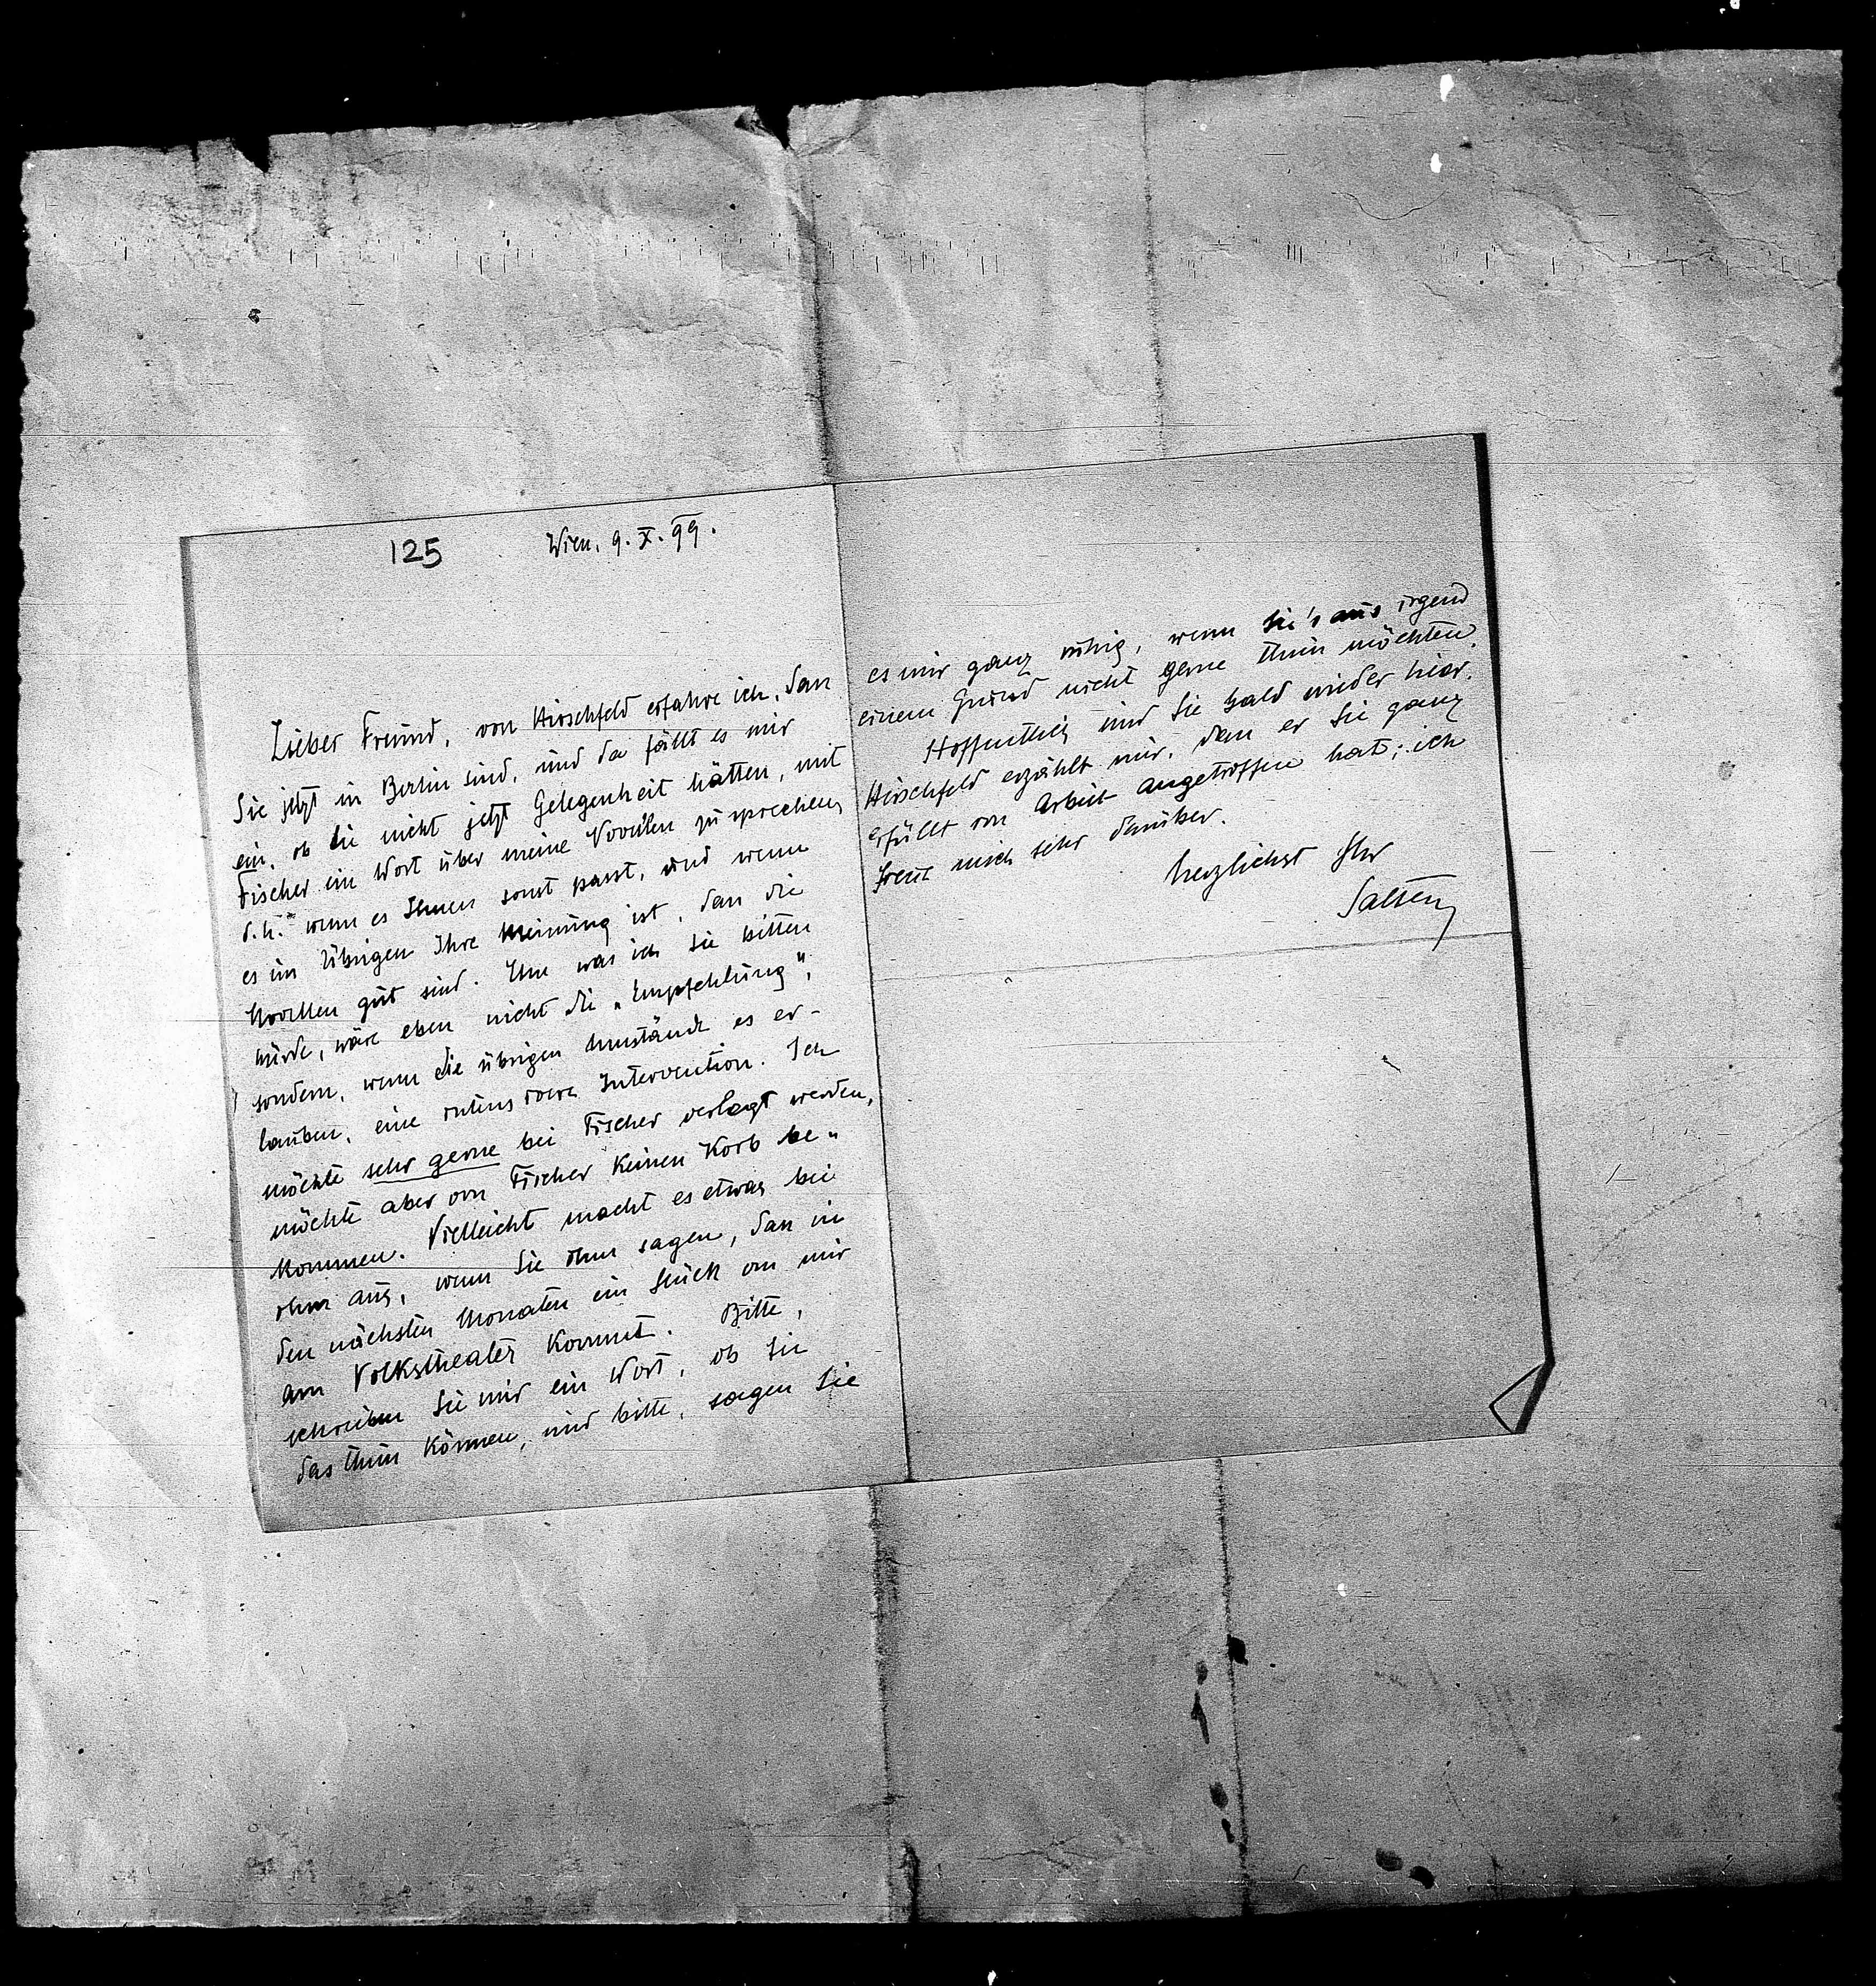 125
Wien, 9. X. 99.
Lieber Freund, von Hirschfeld erfahre ich, dass
Sie jetzt in Berlin sind, und da fällt es mir
ein, ob Sie nicht jetzt Gelegenheit hätten, mit
Fischer ein Wort über meine Novellen zu sprechen,
d. h. wenn es Ihnen sonst passt, und wenn
es im Übrigen Ihre Meinung ist, dass die
Novellen gut sind. Denn was ich Sie bitten
würde, wäre eben nicht die „Empfehlung",
sondern, wenn die übrigen Umstände es er-
lauben, eine intensivere Intervention. Ich
möchte sehr gerne bei Fischer verlegt werden,
möchte aber von Fischer keinen Korb be-
kommen. Vielleicht macht es etwas bei
ihm aus, wenn Sie ihm sagen, dass in
den nächsten Monaten ein Stück von mir
am Volkstheater kommt. Bitte,
schreiben Sie mir ein Wort, ob Sie
das thun können, und bitte, sagen Sie
es mir ganz ruhig, wenn Sie's aus irgend
einem Grund nicht gerne thun möchten.
Hoffentlich sind Sie bald wieder hier.
Hirschfeld erzählt mir, dass er Sie ganz
erfüllt von Arbeit angetroffen hat; ich
freue mich sehr darüber.
herzlichst Ihr
Salten